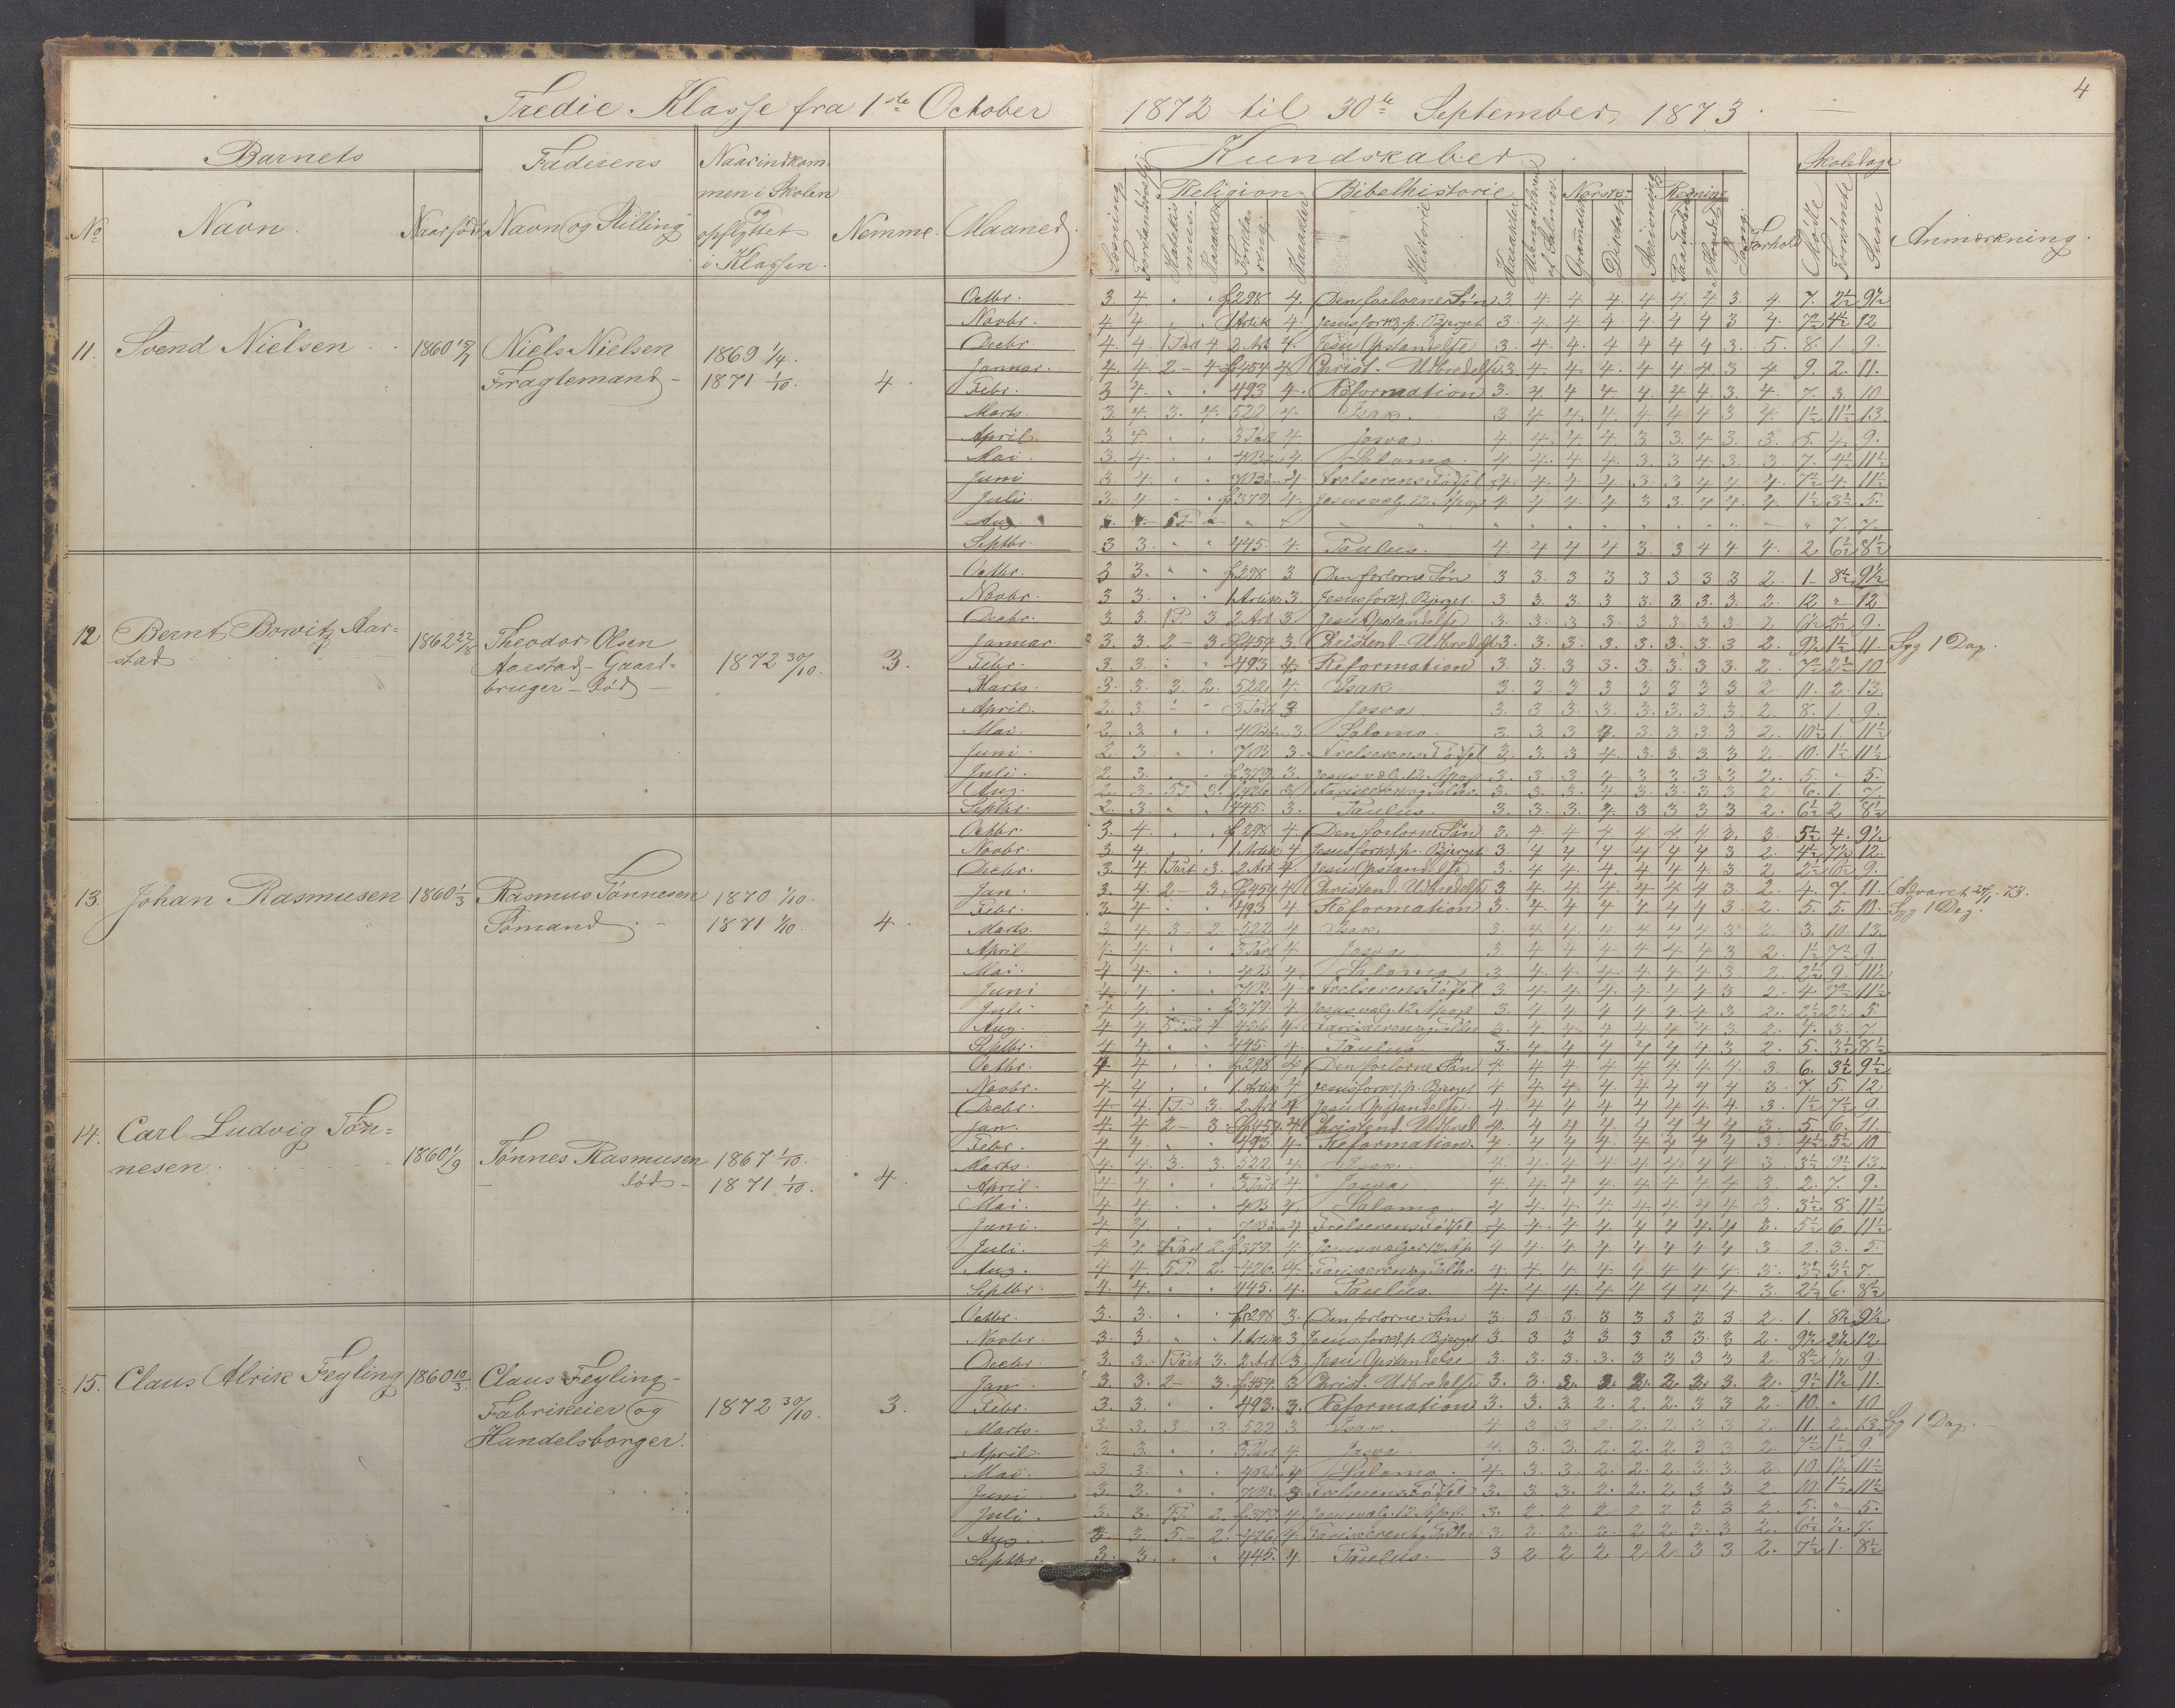 4
Tredie Klasse fra 1ste October 1872 til 30te September 1873.
Barnets Faderens Naar indkom- Kundskaber Skoledage
men i Skolen Religion Bibelhistorie Norsk Regning
No Navn. Naar født Navn og Stilling og opflyttet i Klassen. Nemme. Maaned. Læsning Historie Karakter Gramatik Diktat Skrivning Sang. Forhold Mødte Forsømte Sum Anmærkning.
11. Svend Nielsen
Niels Nielsen
Fragtemand
1869 1/4.
1871 1/10.
4.
Octbr. 3 4 " " f 298 4. Den forlorne Søn 3 4 4 4 4 4 4 3. 4. 7. 2½ 9½
Novbr. 4 4 " " 1 Artik 4. Jesus fork. p. Bjerget 3. 4 4 4 4 4 4 3 4. 7½ 4½ 12
Decbr. 4 4 1 Part 4 2 Art 4. Jesu Opstandelse 3. 4 4. 4 4 4 4 3. 5. 8. 1. 9.
Januar. 4. 4 2 - 4 f 454 4 Christ. Udbredelse 3 4 4 4 4 4 4 3 4 9. 2. 11.
Febr. 3 4. " " 493 4. Reformation 3. 4 4 4 4 4 4 3. 4. 7. 3. 10
Marts. 3 4. 3. 4. 522 4. Isak. 3 4 4 4 4 4 4 3 4. 1½ 11½ 13.
April. 3. 4 " " 3 Part 4 Josva. 4. 4 4 4 3 3. 4 3. 3. 5. 4. 9.
Mai. 3 4. " " 4 Bøn 4 Salomo. 4 4. 4 4. 3. 3 4 3. 3. 7. 4½ 11½
Juni 3 4. " " 7 Bøn 4 Frelserens Fødsel 4. 4 4 4 3 3 4 4 4. 7½ 4. 11½
Juli. 3 4 " " f 379 4. Jesus vælg. 12 Apop 4 4 4 4 3 3. 4 4. 4 1½ 3½ 5.
Aug. 7. 7.
Septbr. 3 3. " " 445. 4. Paulus. 4. 4 4 4 3. 3 4 4 4. 2. 6½ 8½
12 Bernt Bowitz Aar-
stad
1862 22/8
Theodor Olsen
Aarstad - Gaard-
bruger - død -
1872 30/10.
3.
Octbr. 3 3. " " f 298 3 Den forlorne Søn 3 3. 3 3 3 3 3 3 2. 1. 8½ 9½
Novbr. 3 3. " " 1 Artik. 3. Jesus fork. p. Bjerget. 3. 3. 3 3 3. 3. 3. 3. 2. 12 " 12
Decbr. 3 3. 1 P. 3. 2 Art 3 Jesu Opstandelse 3. 3. 3. 3. 3. 3. 3. 3. 2 6½ 2½ 9.
Januar 3. 3. 2 - 3 f 454. 3. Christend. Udbredelse 3. 3. 3. 3. 3. 3. 3. 3 2. 9½ 1½ 11. Syg 1 Dag.
Febr. 3 3. " " 493 4 Reformation 3. 3 3 3. 3. 3. 3 3. 2. 7½ 2½ 10
Marts. 3. 3. 3. 2. 522 4. Isak 3. 3. 3 3 3 3 3 3 2. 11. 2. 13.
April. 2. 3. " " 3 Part 3. Josva 3. 3 3. 3. 3. 3. 3. 3. 2. 8. 1. 9.
Mai. 2 3. " " 4 Bøn 3. Salomo. 3. 3 3 4. 3. 3. 3. 3 2. 10½ 1. 11½
Juni. 2. 3. " " 7 B. 3. Frelserens Fødsel 3. 3. 3 4. 3. 3. 3 3 2. 10. 1½ 11½
Juli. 2 3. " " f 379. 3. Jesus vælg. 12. Apop 3. 3. 3 4 3 3 3 3 2. 5. " 5.
Aug. 2. 3. 5 P. 3. 426 3 Farisæeren og Tolder. 3. 3. 3. 4 3. 3. 3 3 2 6. 1. 7.
Septbr. 2. 3. " " 445. 3. Paulus. 3. 3. 3. 4. 3 3 3 3 2. 6½ 2 8½
13. Johan Rasmusen 1860 1/3
Rasmus Tønnesen
Sømand.
1870 1/10.
1871 1/10.
4.
Octbr. 3. 4. " " f 298 4. Den forlorne Søn 3. 4 4 4 4 4 4 3. 3. 5½ 4. 9½
Novbr. 3 4. " " 1 Artik. 4 Jesus fork. p. Bjerget 3. 4 4 4 4 4 4 3 2. 4½ 7½ 12.
Decbr. 3. 4 1 Part 3. 2 Art 4. Jesu Opstandelse 3. 4 4. 4. 4. 4 4. 3 2. 2½ 6½ 9.
Jan. 3. 4 2 - 3. f 454 4 Christend. Udbredelse 3 4 4. 4 4 4 4 3 2. 4. 7. 11. Advaret 24/1. 73.
Febr. 3. 4 " " 493 4 Reformation 3. 4 4 4 4 4 4 3. 2. 5. 5. 10. Syg 1 Dag.
Marts. 3 4. 3 - 2. 522 4 Isak. 3. 4 4 4 4 4 4 3 2. 3. 10. 13.
April 4 4 " " 3 Part 4 Josva 3. 4 4 4 4 4 4 3 2. 1½ 7½ 9.
Mai. 4 4. " " 4 B 4. Salomo 3 4. 4. 4. 4 4 4 3. 2 2½ 9. 11½
Juni 4. 4. " " 7 B. 4 Frelserens Fødsel 3 4. 4 4. 4 4 4 3 2. 4. 7½ 11½
Juli. 4 4. " " f 379. 4 Jesus vælg. 12 Apop 3 4 4 4 4 4 4 3 2. 2½ 2½ 5.
Aug. 4 4 5 Part 4 426 4. Farisæeren og Tolder 3. 4 4 4 4 4 4 3. 2. 4. 3. 7.
Septbr. 4 4. " " 445. 4. Paulus. 3. 4 4 4 4 4 4 3 2. 5. 3½ 8½
14. Carl Ludvig Tøn-
nesen.
1860 1/9
Tønnes Rasmusen
død -
1867 1/10.
1871 1/10.
4.
Octbr. 4 4 " " f 298 4 Den forlorne Søn 4. 4 4 4 4 4 4 4. 3. 6. 3½ 9½
Novbr. 4 4 " " 1 Artik 4 Jesus fork. p. Bjerget 4 4 4 4 4 4 4 4 3. 7. 5. 12
Decbr. 4. 4. 1 P. 3. 2 Art 4 Jesu Opstandelse. 4. 4 4 4 4 4 4 4. 3. 1½ 7½ 9.
Jan. 4. 4 2 - 3. f 454 4 Christend. Udbred 4 4 4 4 4 4 4 4 3. 5 6. 11.
Febr. 4. 4. " " 493 4. Reformation. 4. 4 4 4 4 4 4 4 3. 4½ 5½ 10
Marts. 4. 4. 3. 3. 522 4. Isak. 4. 4 4 4 4 4 4 4 3. 3½ 9½ 13.
April. 4 4 " " 3 Part 4 Josva 4 4 4 4 4 4 4 4 3. 2. 7. 9.
Mai. 4 4. " " 4 B 4. Salomo 4 4 4 4 4 4 4 4 3. 3½ 8. 11½
Juni. 4 4. " " 7 Bøn 4 Frelserens Fødsel 4 4. 4 4 4 4 4 4 3. 5½ 6. 11½
Juli. 4 4 4 Part 2. f 379. 4 Jesus vælger 12 Ap 4 4. 4 4 4 4 4 4 3. 2. 3. 5.
Aug. 4. 4. 5 P. 2. 426. 4. Farisæeren og Tolder. 4. 4 4 4 4 4 4 4. 3. 3½ 3½ 7.
Septbr. 4. 4. " " 445. 4. Paulus. 4. 4. 4. 4. 4 4 4 4 3. 2½ 6. 8½
15. Claus Alrik Feyling 1860 10/3.
Claus Feyling -
Fabrikeier og
Handelsborger.
1872 30/10.
3.
Octbr. 3. 3. " " f 298 3. Den forlorne Søn 3. 3. 3. 3 3 3 3 3 2. 1. 8½ 9½
Novbr. 3. 3. " " 1 Artik 3 Jesus fork. p. Bjerget 3 3 3 3 3 3 3. 3 2. 9½ 2½ 12
Decbr. 3. 3. 1 Part 3. 2 Art 3. Jesu Opstandelse 3. 3. 3. 3. 3 3 3 3 2. 8½ ½ 9.
Jan. 3. 3. 2 - 3. f 454. 3 Christ. Udbredelse 3. 3. 3. 2. 9½ 1½ 11.
Febr. 3. 3. " " 493. 3. Reformation 3. 3. 3 2. 2. 2. 3 3 2. 10. " 10
Marts. 3. 3. 3 3. 522 3. Isak. 4. 3 3 2. 2. 2. 3 3 2. 11 2. 13 Syg 1 Dag.
April. 3. 3. " " 3 Part 4. Josva 4. 3. 3. 2. 2. 2 3 3 2. 7½ 1½ 9.
Mai. 3. 3. " " 4 Bøn 4 Salomo. 4. 3. 3. 2. 2. 2 3 3. 2. 10. 1½ 11½
Juni 3. 3. " " 7 B. 3 Frelserens Fødsel 3. 3. 3. 2. 2. 2 3 3 2. 10. 1½ 11½
Juli. 3. 3. 2. f 379 4 Jesus vælg. 12 Apop. 3. 2. 2 2 2 2 3 3 2. 5. " 5.
Aug. 3. 3. 5 - 2. 426. 4. Farisæeren og Tolder 3. 2. 2. 2. 2 2. 3. 3 2. 6½ ½. 7.
Septbr. 3. 3. " " 445. 4 Paulus. 3 2 2 2 2 2 3 3 2. 7½ 1. 8½